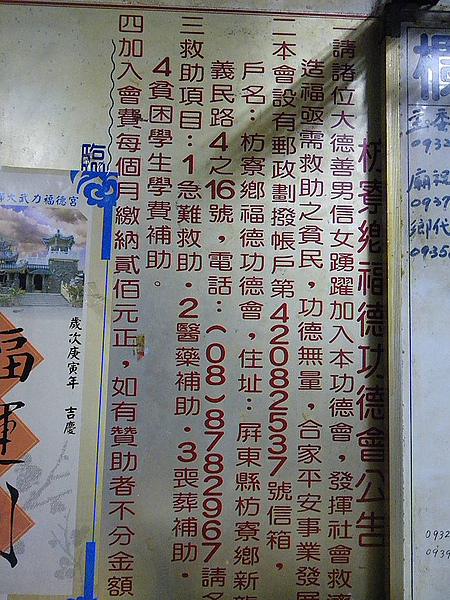 枋寮鄉福德功德會公告
一請諸位大德善男信女踴躍加入本功德會，發揮社會救濟
造福亟需救助之貧民，功德無量，合家平安事業發展
二本會設有郵政劃撥帳戶第42082537號信箱，
戶名：枋寮鄉福德功德會，住址：屏東縣枋寮鄉新龍
義民路4之16號，電話：(08)8782967請多
三救助項目：1急難救助．2醫藥補助．3喪葬補助．
4貧困學生學費補助。
四加入會費每個月繳納貳佰元正，如有贊助者不分金額
0932
廟祝
0937
鄉代
0935
0932
0939
臨
火武力福德宮
歲次庚寅年 吉慶
福運